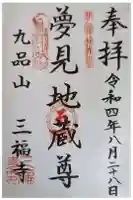 奉拝
令和四年八月二十八日
夢見地蔵尊
九品山
三福寺